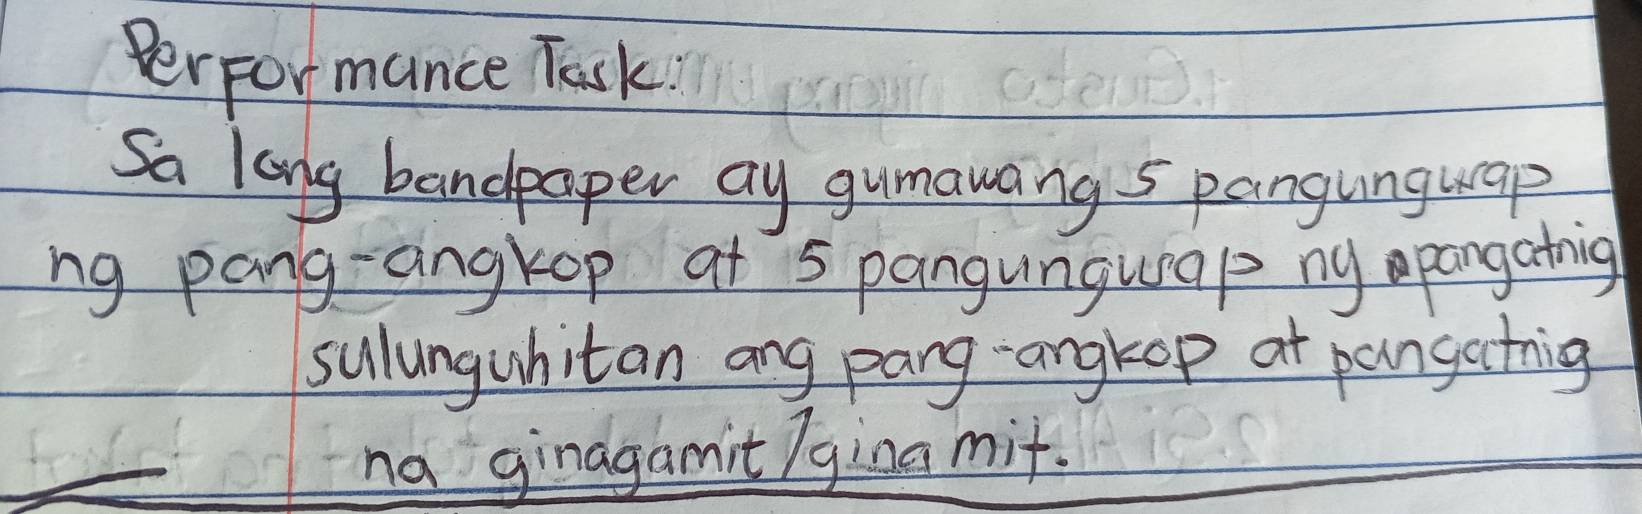 Performance Task:
Sa long bandpaper ay gumawang 5 pangungusap
ng pang-angkop at 5 pangungusap ng pangatnig
sulunguhitan ang pang-angkop at pangatnig
na ginagamit/ginamit.